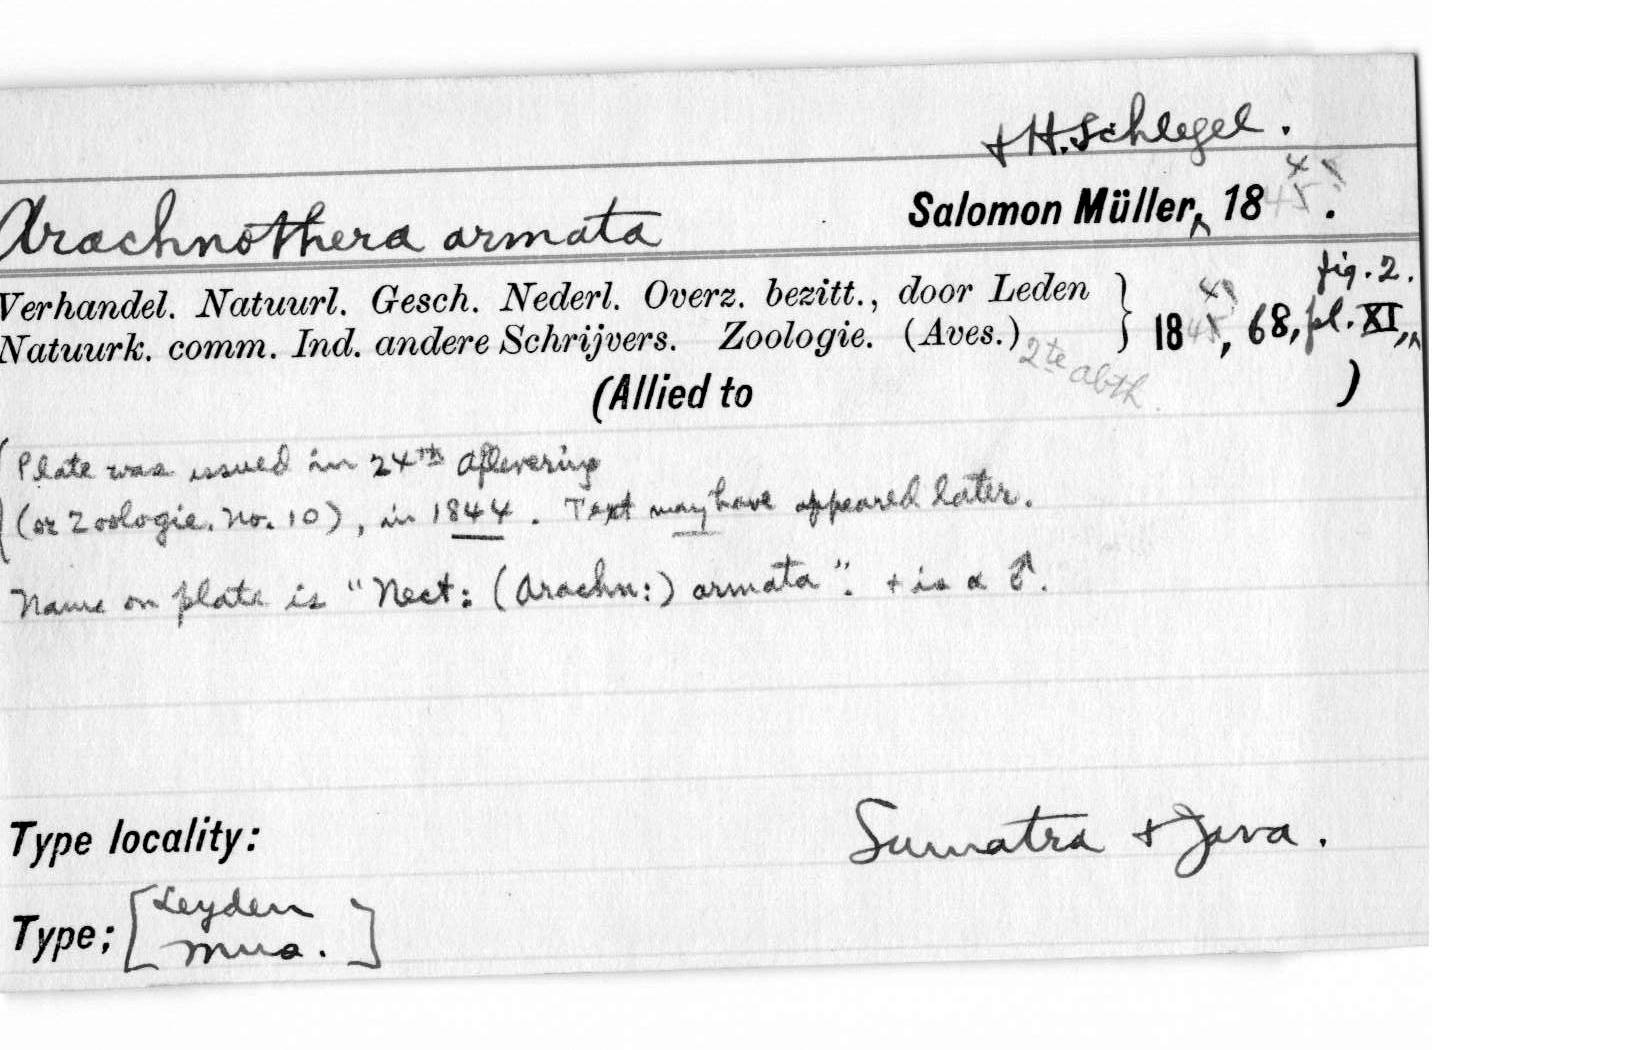 + H. Schlegel.
Arachnothera armata Salomon Müller, 1845.
fig. 2.
Verhandel. Natuurl. Gesch. Nederl. Overz. bezitt., door Leden
Natuurk. comm. Ind. andere Schrijvers. Zoologie. (Aves.) 1845, 68, pl. XI,
2te abth.
(Allied to )
Plate was issued in 24th aflevering
(or Zoologie. No. 10), in 1844. Text may have appeared later.
Name on plate is "Nect: (Arachn:) armata". + is a ♂.
Type locality: Sumatra + Java.
Type; [Leyden
Mus.]